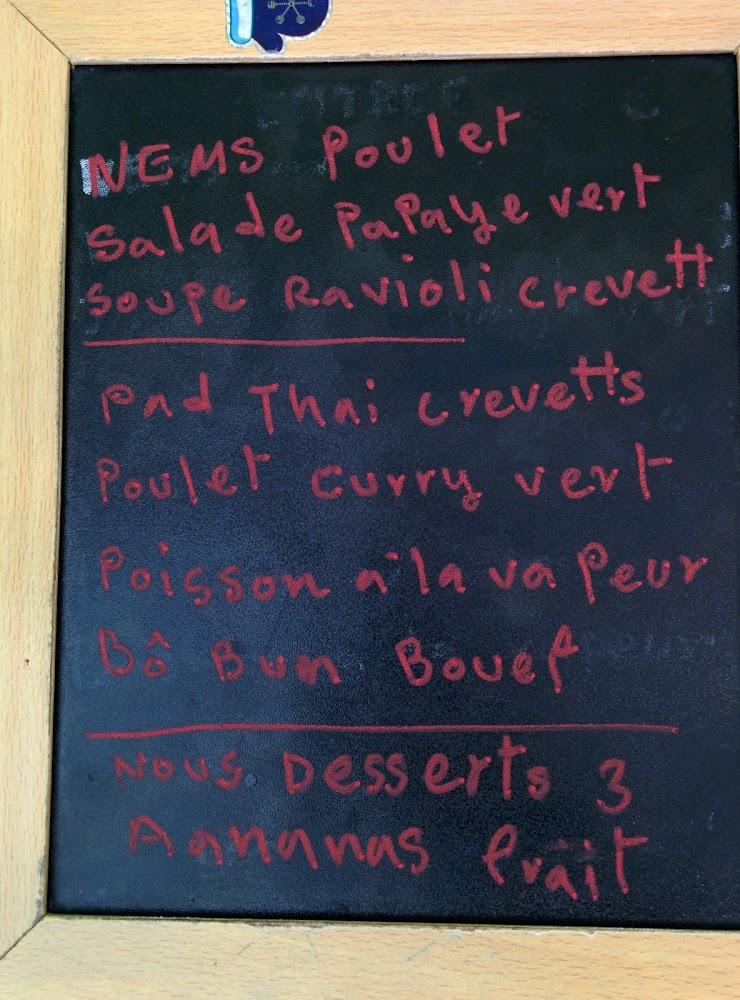 NEMS Poulet
Salade PaPaye vert
Soupe Ravioli crevett
Pad Thai crevetts
Poulet curry vert
Poisson a' la va Peur
Bô Bun Bouef
Nous Desserts 3
Aananas frait